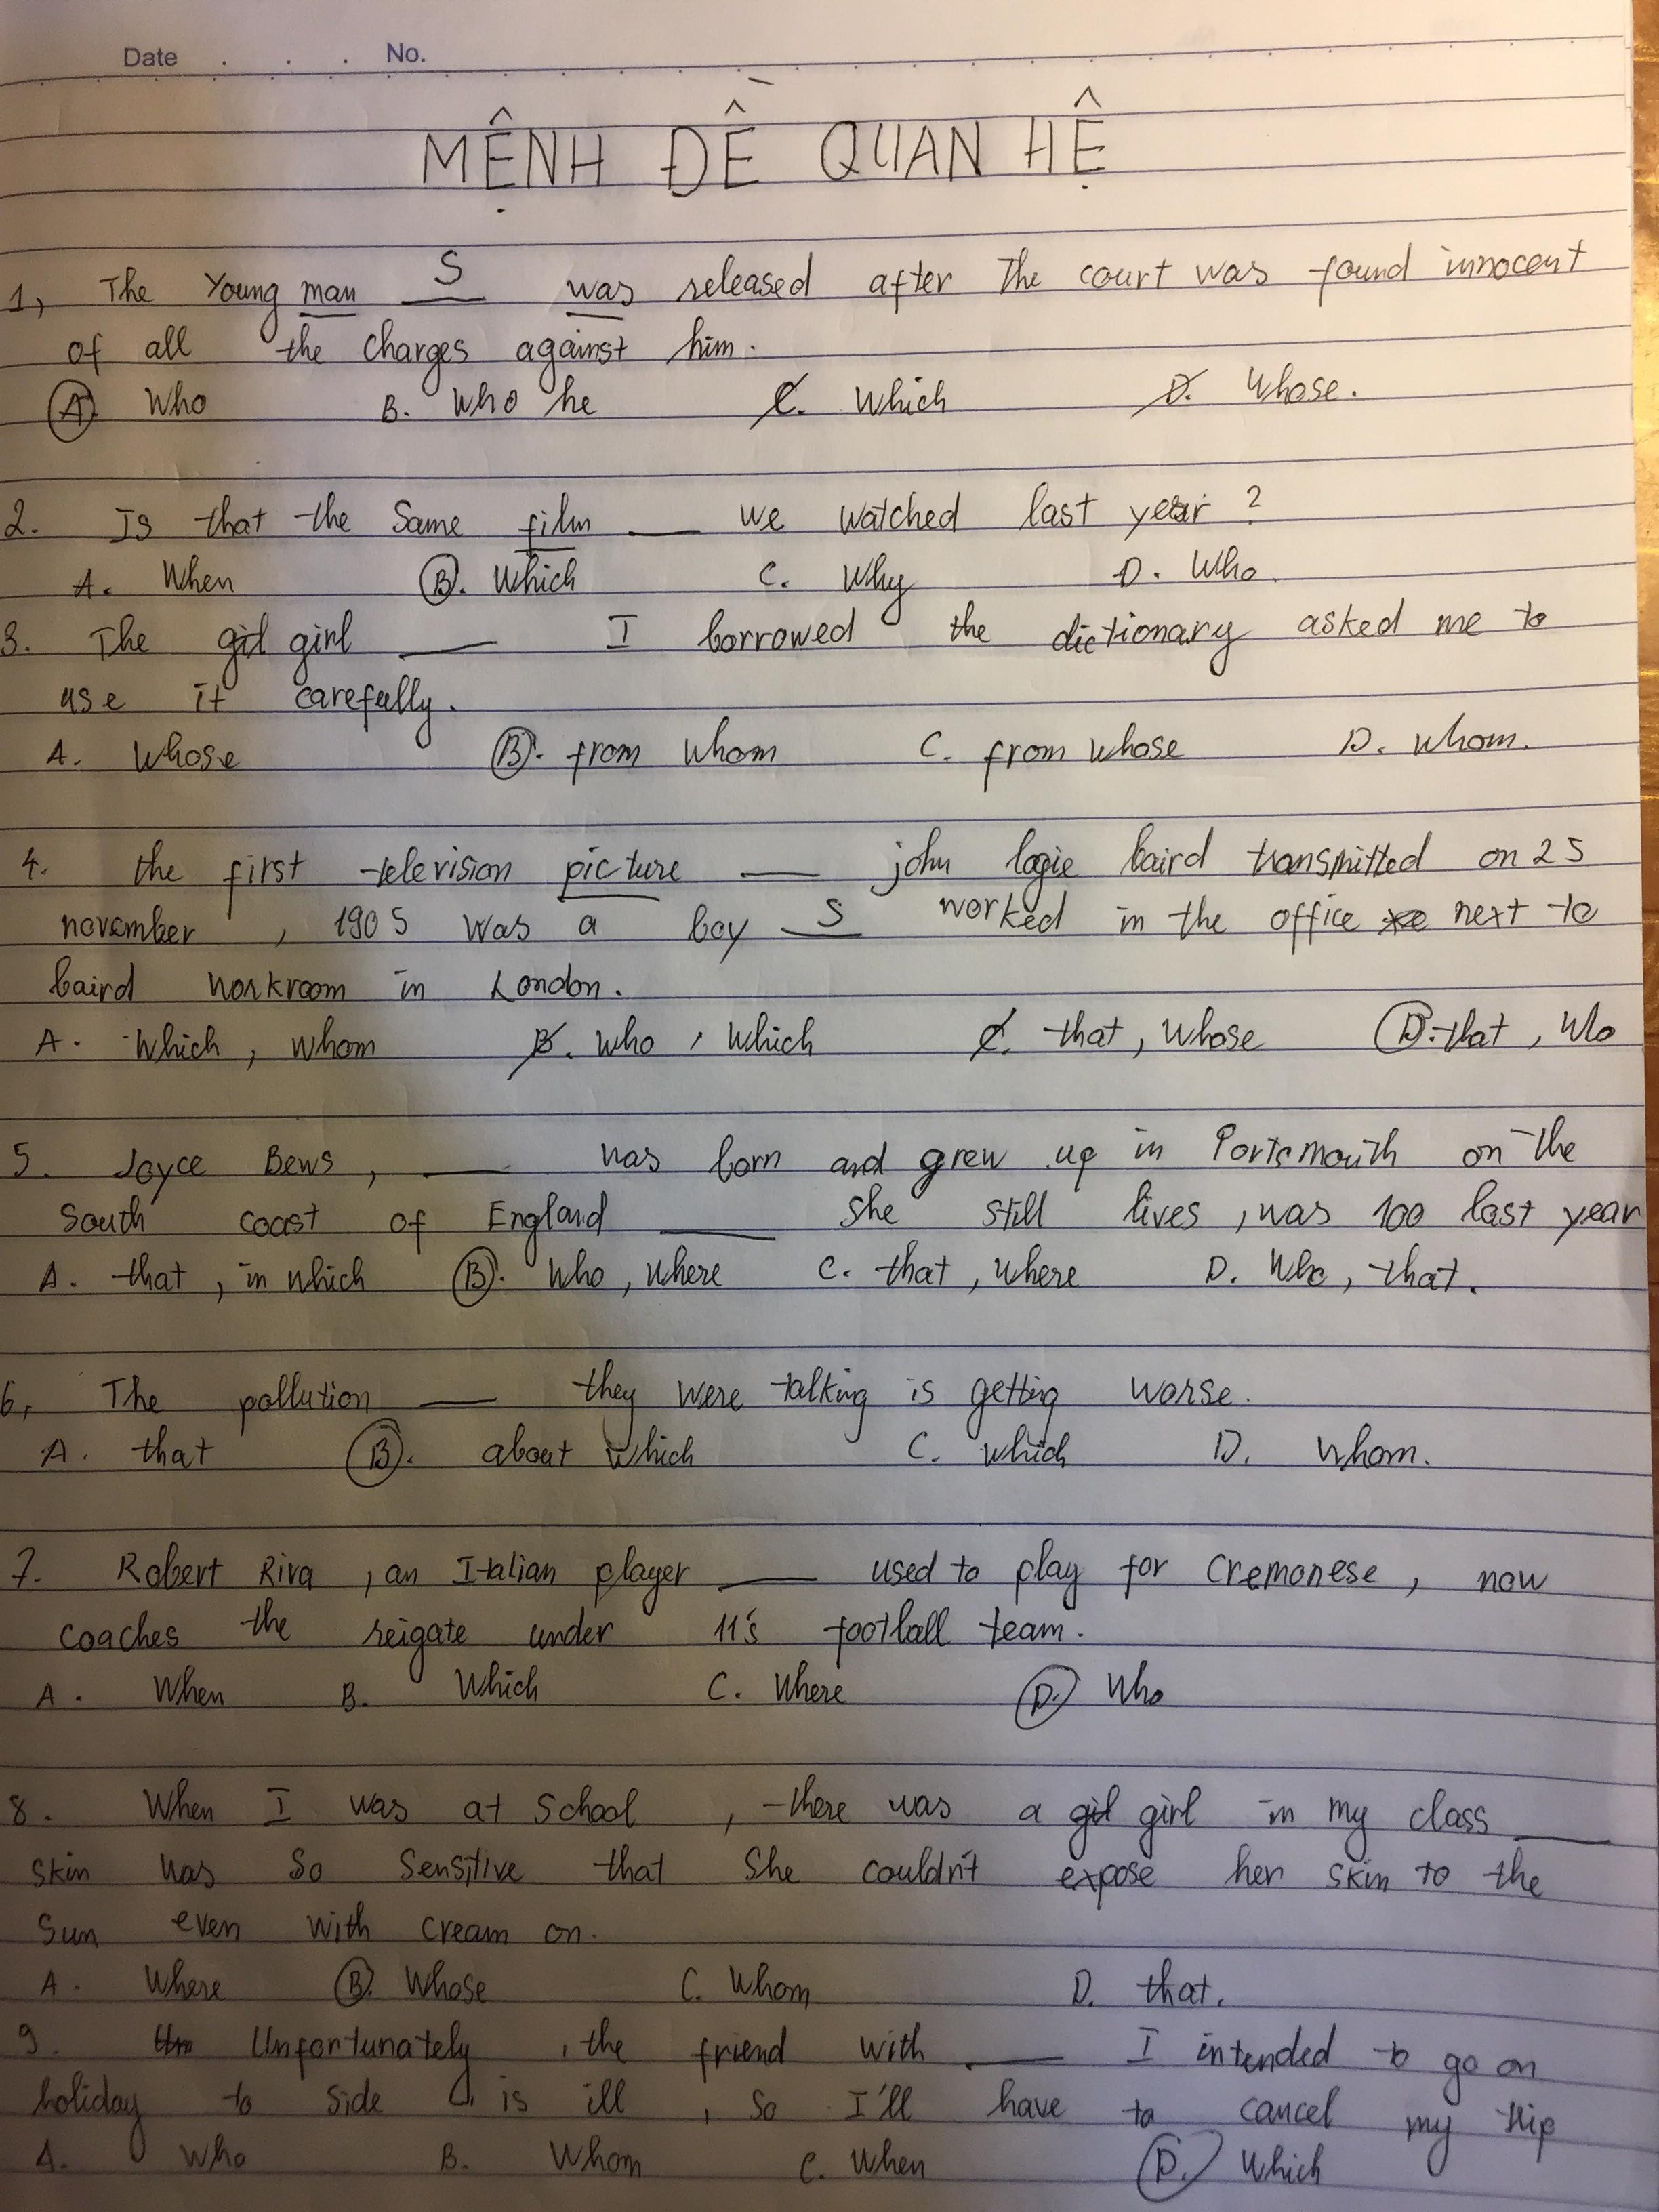 Date . . . No.
MỆNH ĐỀ QUAN HỆ
1, The Young man S was released after The court was found innocent
of all the charges against him.
A. Who B. Who he C. Which D. Whose.
2. Is that the Same film ___ we watched last year ?
A. When B. Which C. Why D. Who.
3. The gil girl ___ I borrowed the dictionary asked me to
use it carefully.
A. Whose B. from Whom C. from whose D. whom.
4. the first television picture ___ john logie baird transmitted on 25
november , 1905 was a boy S worked in the office next to
baird workroom in London.
A. Which, whom B. who, which C. that, whose D. that, who
5. Joyce Bews, ___ was born and grew up in Portsmouth on the
South coast of England ___ she still lives, was 100 last year
A. that, in which B. Who, where C. that, where D. Who, that.
6, The pollution ___ they were talking is getting worse.
A. that B. about which C. which D. whom.
7. Robert Riva, an Italian player ___ used to play for Cremonese, now
coaches the reigate under 11's football team.
A. When B. Which C. Where D. Who
8. When I was at School , there was a gil girl in my class ___
skin was so sensitive that she couldn't expose her skin to the
sun even with cream on.
A. Where B. Whose C. Whom D. that.
9. Un Unfortunately , the friend with ___ I intended to go on
holiday to side is ill , so I'll have to cancel my trip
A. Who B. Whom C. When D. Which